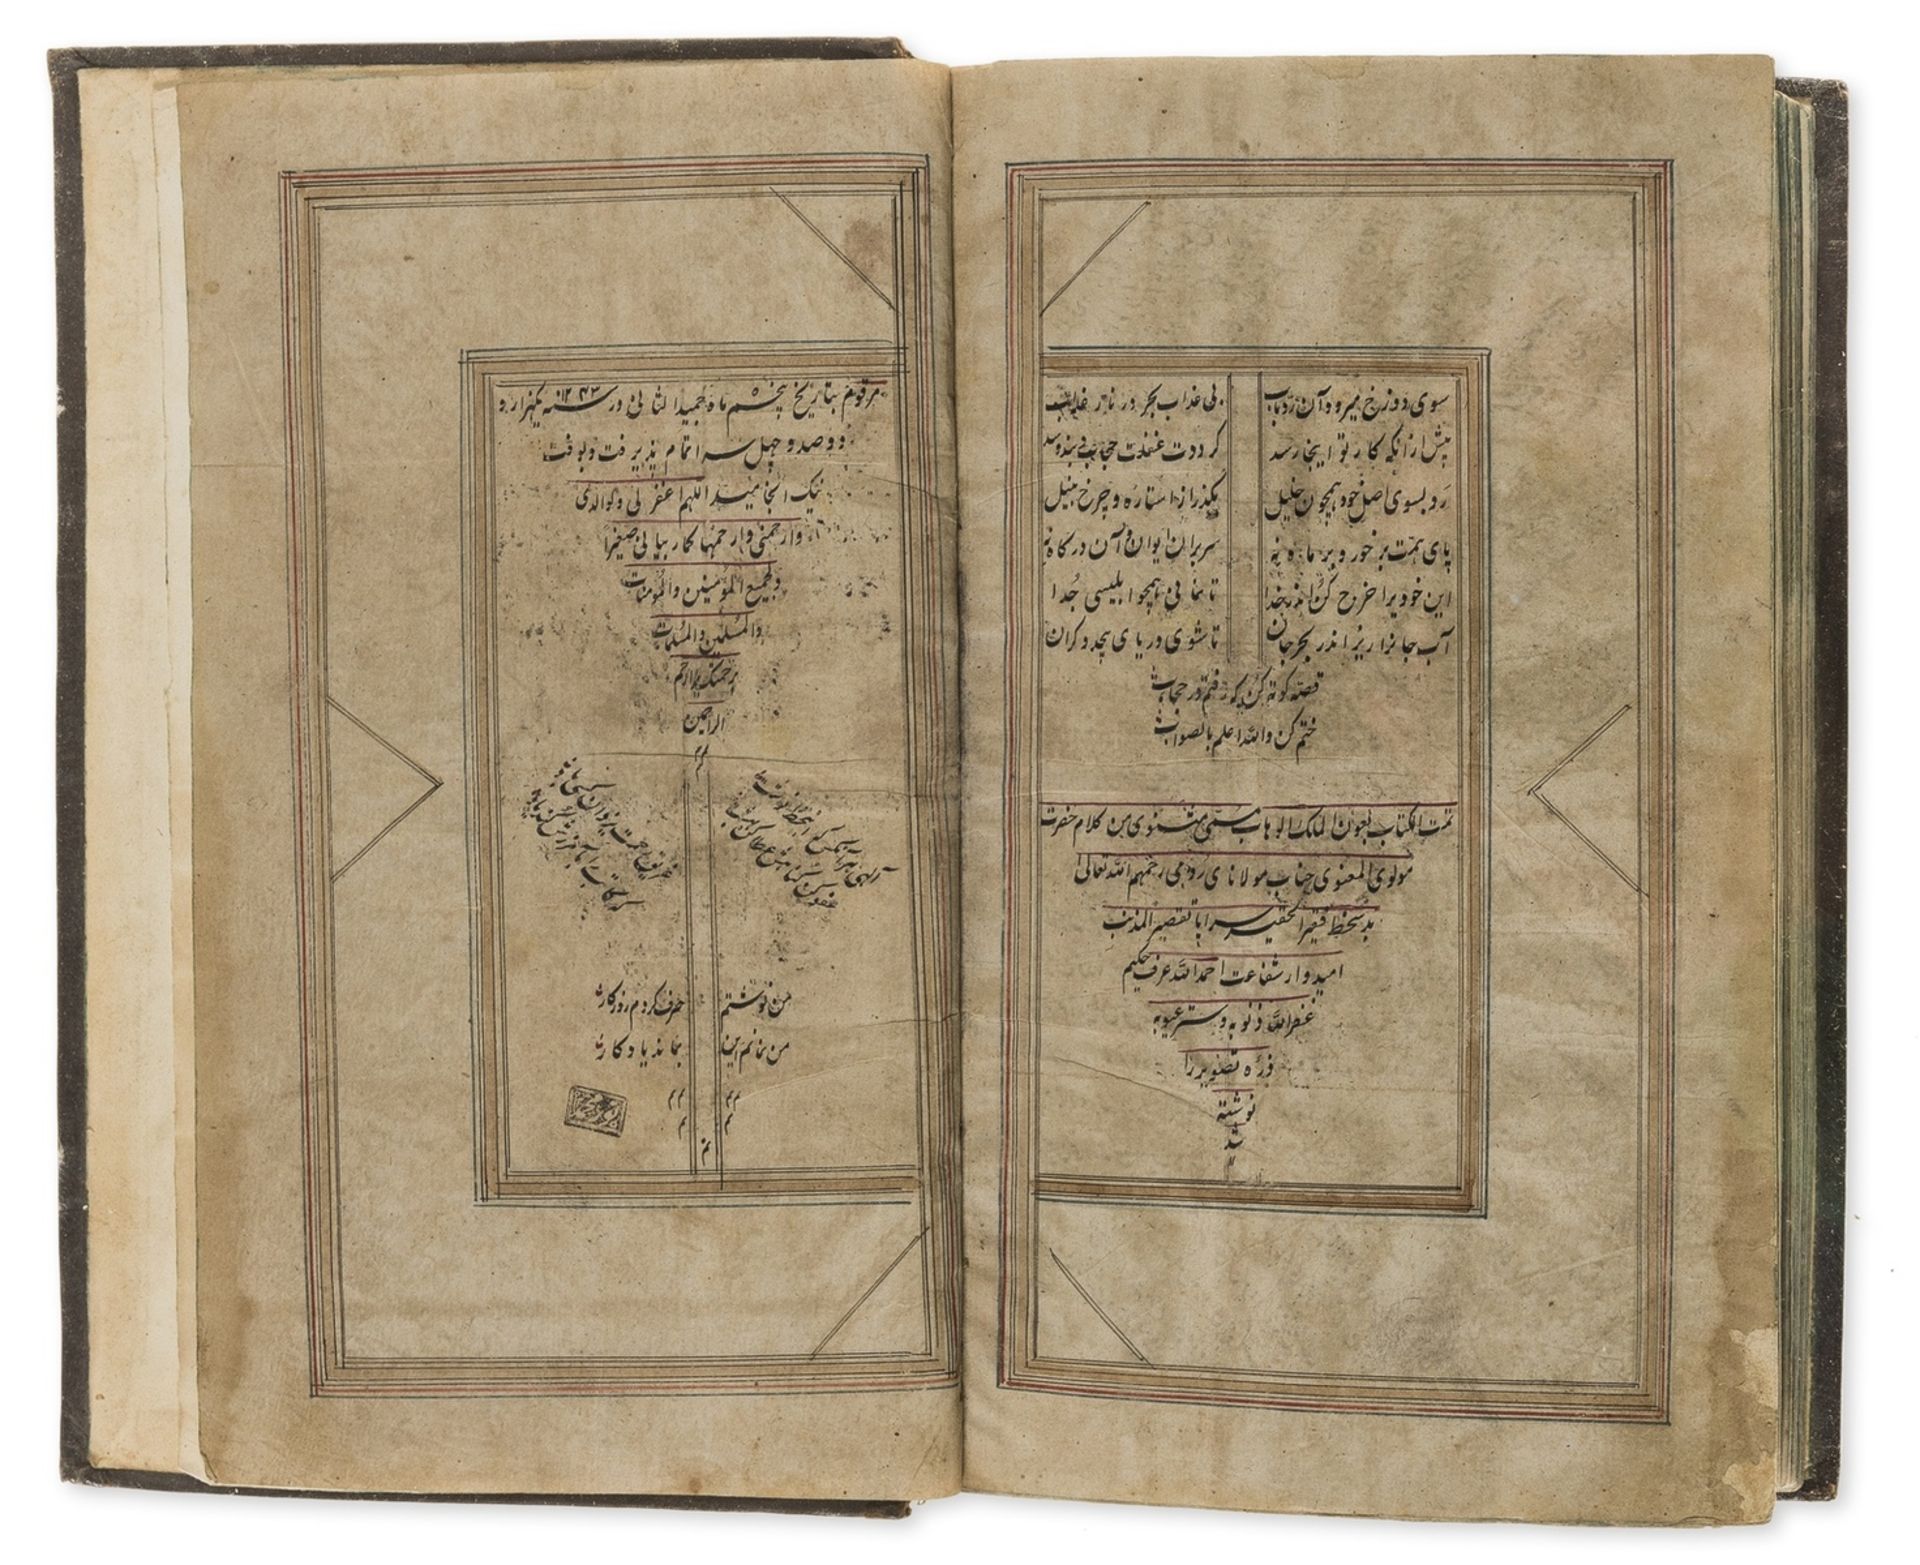 سوی دوزخ میرود آن رو بتاب بی عذاب بحر در نار عذاب
پیش ازانکه کار تو اینجا رسد کرددت غفلت حجاب
رو بسوی اصل خود همچون خلیل بگذر از استاره و چرخ
پای همت بر خور و بر ماه نه سر بران ایوان و آن درکاه نه
این خودیرا خرج کن اندر خدا تا نمانی همچو ابلیسی جُدا
آب جانرا ریز اندر بحر جان تا شوی دریای بیحد و کران
قصه کوته کن که رفتم در حجاب
ختم کن والله اعلم بالصواب
تمت الکتاب بعون الملک الوهاب مسمی مثنوی من کلام حضرت
مولوی المعنوی جناب مولانای رومی رحمهم الله تعالی
بدستخط فقیر الحقیر سراپا تقصیر المذنب
امیدوار شفاعت احمد الله عرف حکیم
غفر الله ذنوبه و ستر عیوبه
نوشته
شد
مرقوم بتاریخ پنجم ماه جمید الثانی در سنه ۱۲۴۳ یکهزار و
دو صد و چهل سه اتمام پذیرفت و بوقت
نیک انجامید اللهم اغفر لی ولوالدی
وارحمنی وارحمهما کما ربیانی صغیرا
ولجمیع المؤمنین والمؤمنات
والمسلمین والمسلمات
برحمتک یا ارحم
الراحمین
من نوشتم صرف کردم روزکار
من نمانم این بماند یادکار